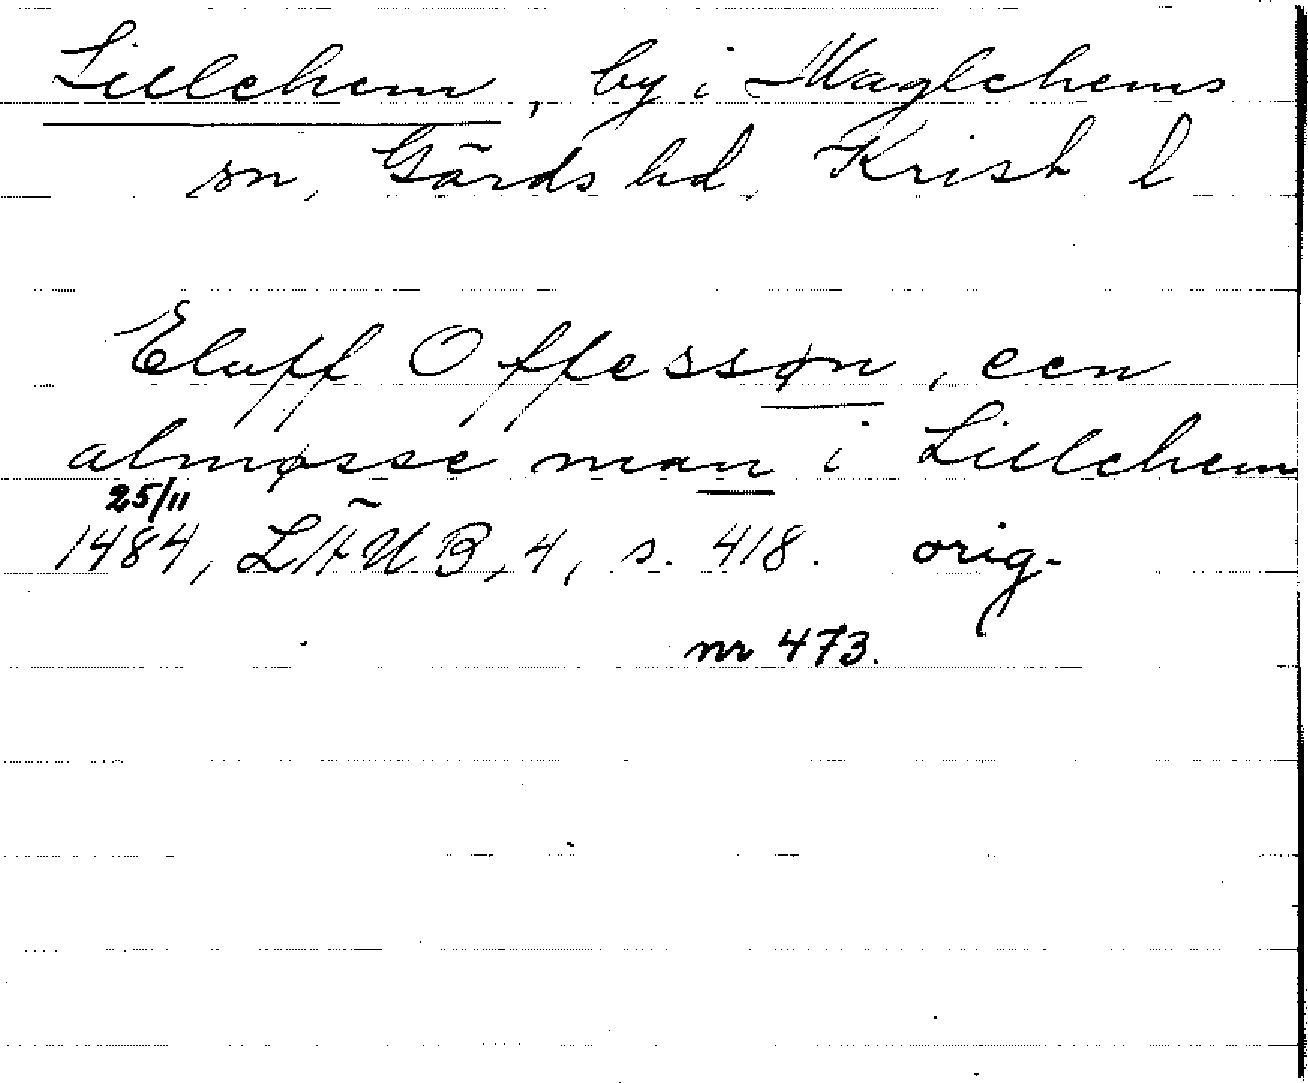 Lillehem, by i Maglehems
sn, Gärds hd. Krist l
Eluff Offessøn, een
almøsse man i Lillehem
25/11
1484, LÄUB, 4, s. 418. orig.
nr 473.